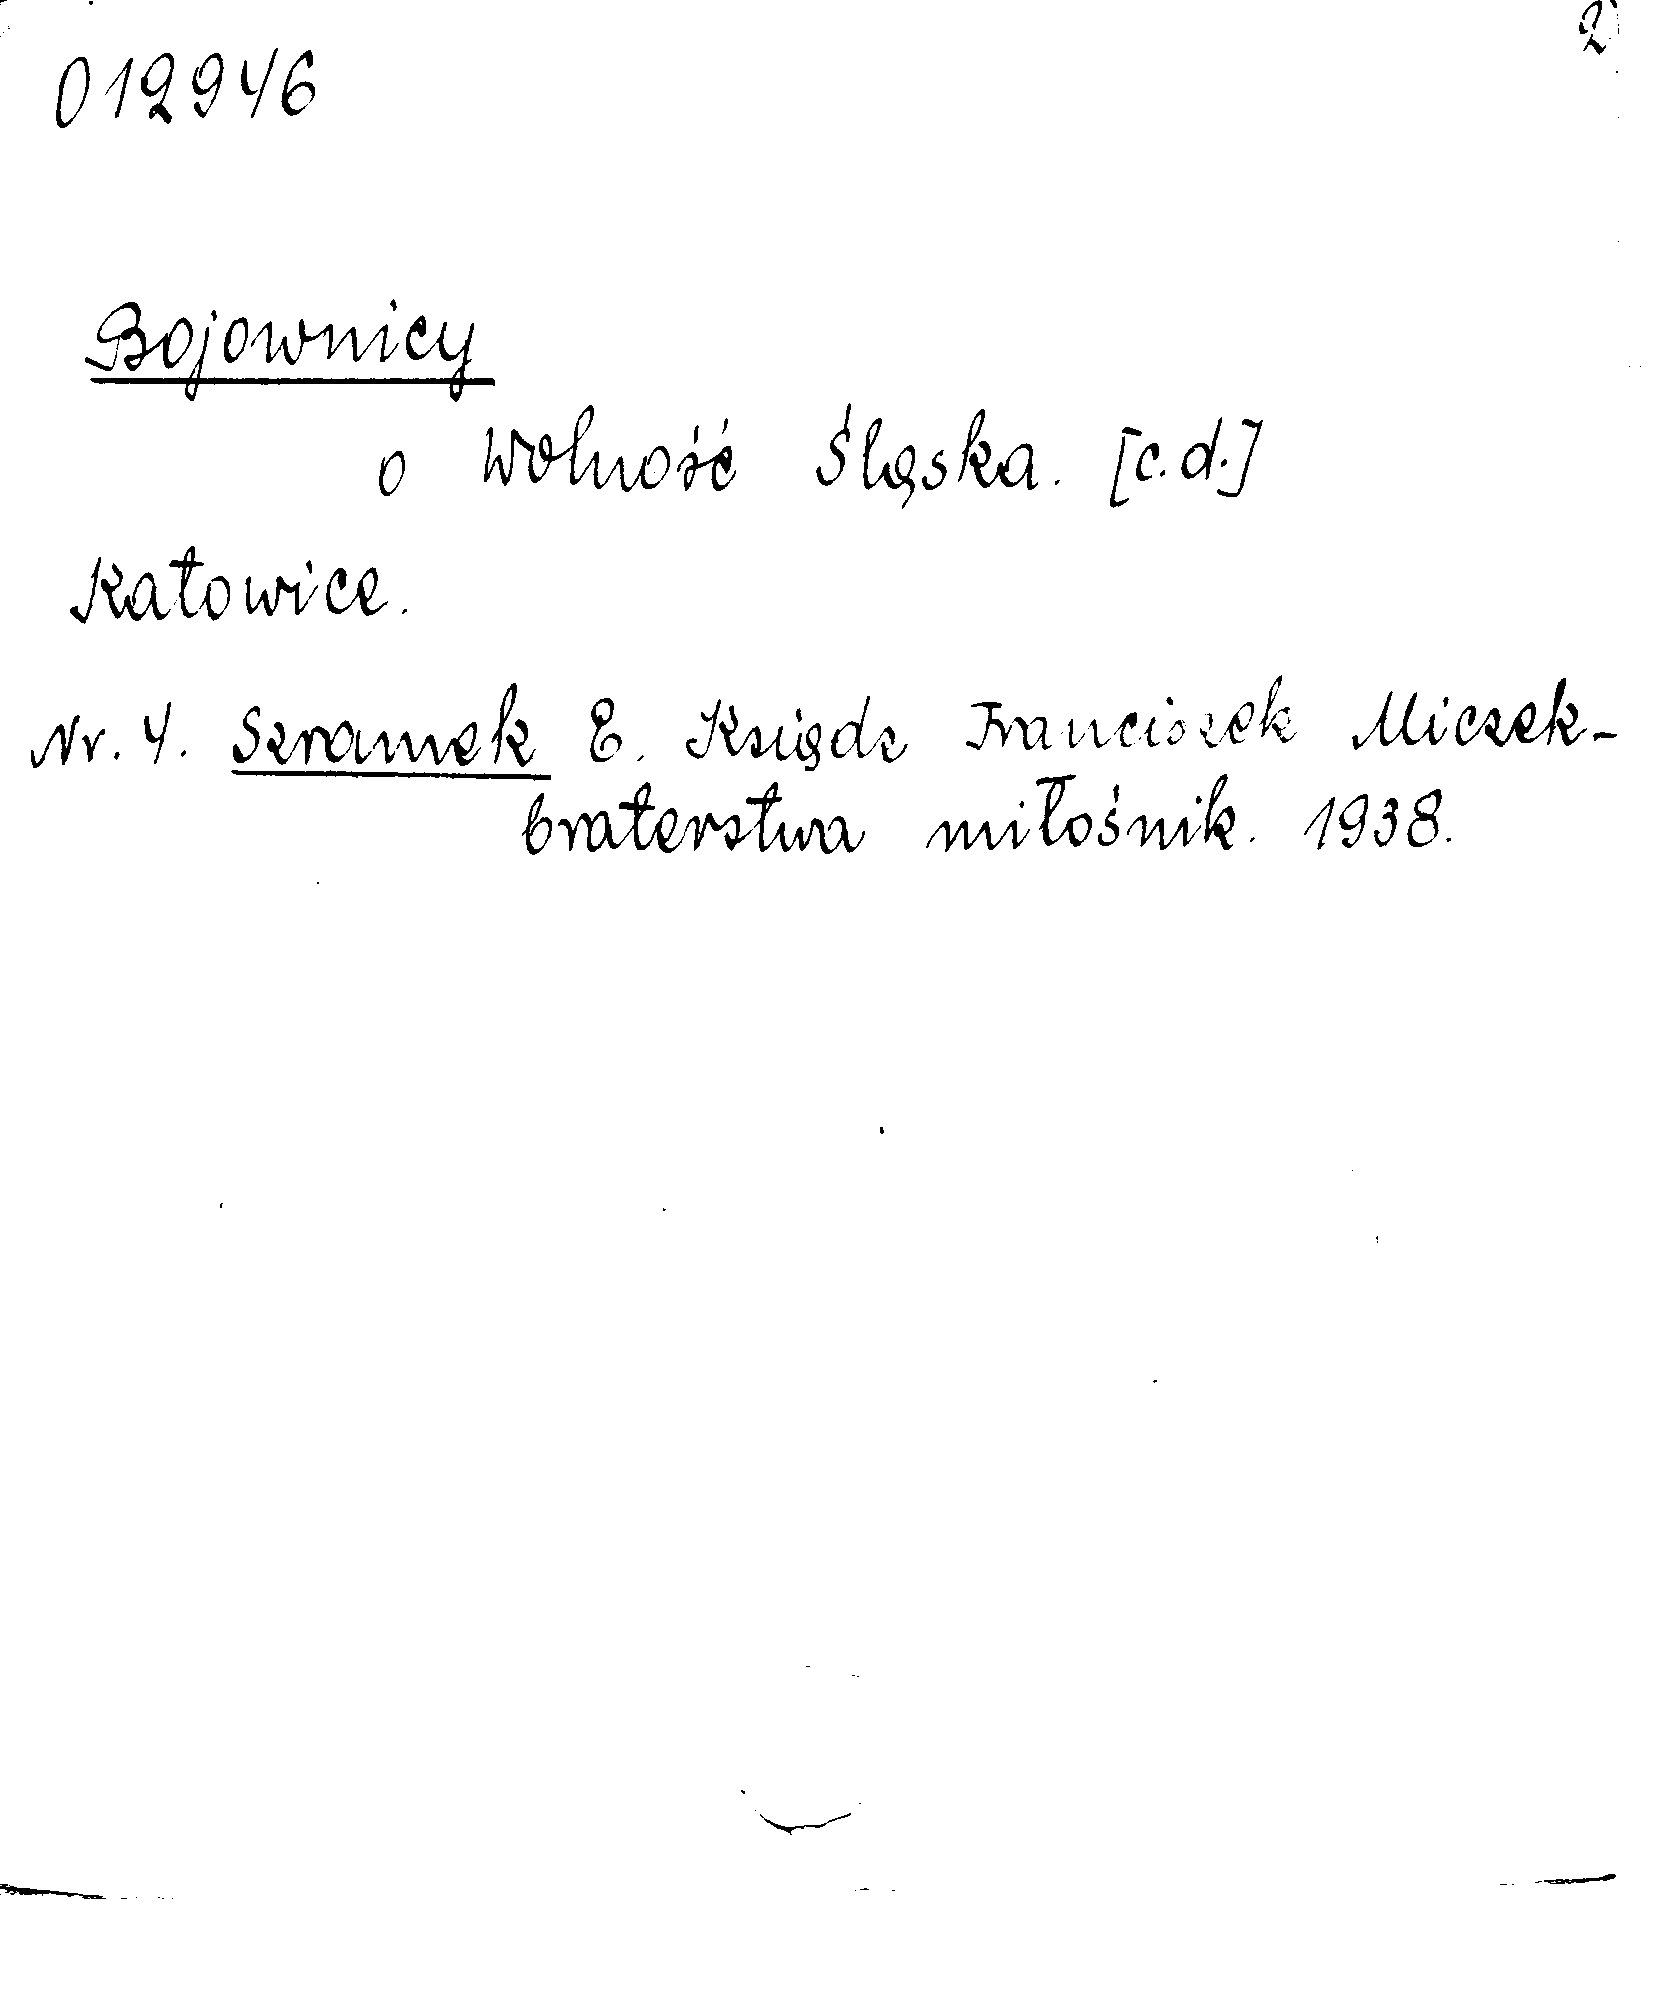 2
012946
Bojownicy
o Wolność Śląska. [c.d.]
Katowice.
Nr. 4. Szramek E. Ksiądz Franciszek Miczek-
braterstwa miłośnik. 1938.